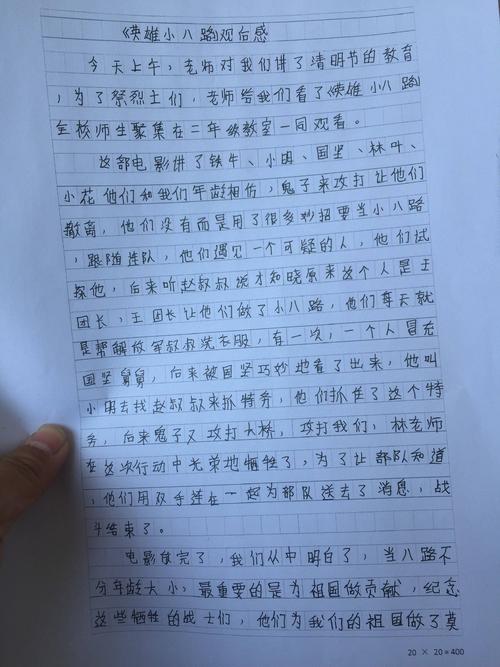 《英雄小八路》观后感
今天上午，老师对我们讲了清明节的教育
，为了祭烈士们，老师给我们看了《英雄小八路》
全校师生聚集在二年级教室一同观看。
这部电影讲了铁牛、小明、国坚、林叶、
小花他们和我们年龄相仿，鬼子来攻打让他们
撤离，他们没有而是用了很多妙招要当小八路
，跟随连队，他们遇见一个可疑的人，他们试
探他，后来听赵叔叔说才知晓原来这个人是王
团长，王团长让他们做了小八路，他们每天就
是帮解放军叔叔洗衣服，有一次，一个人冒充
国坚舅舅，后来被国坚巧妙地看了出来，他叫
小明去找赵叔叔来抓特务，他们抓住了这个特
务，后来鬼子又攻打大桥，攻打我们，林老师
在这次行动中光荣地牺牲了，为了让部队知道
，他们用双手连在一起为部队送去了消息，战
斗结束了。
电影放完了，我们从中明白了，当八路不
分年龄大小，最重要的是为祖国做贡献，纪念
这些牺牲的战士们，他们为我们的祖国做了莫
20 × 20=400